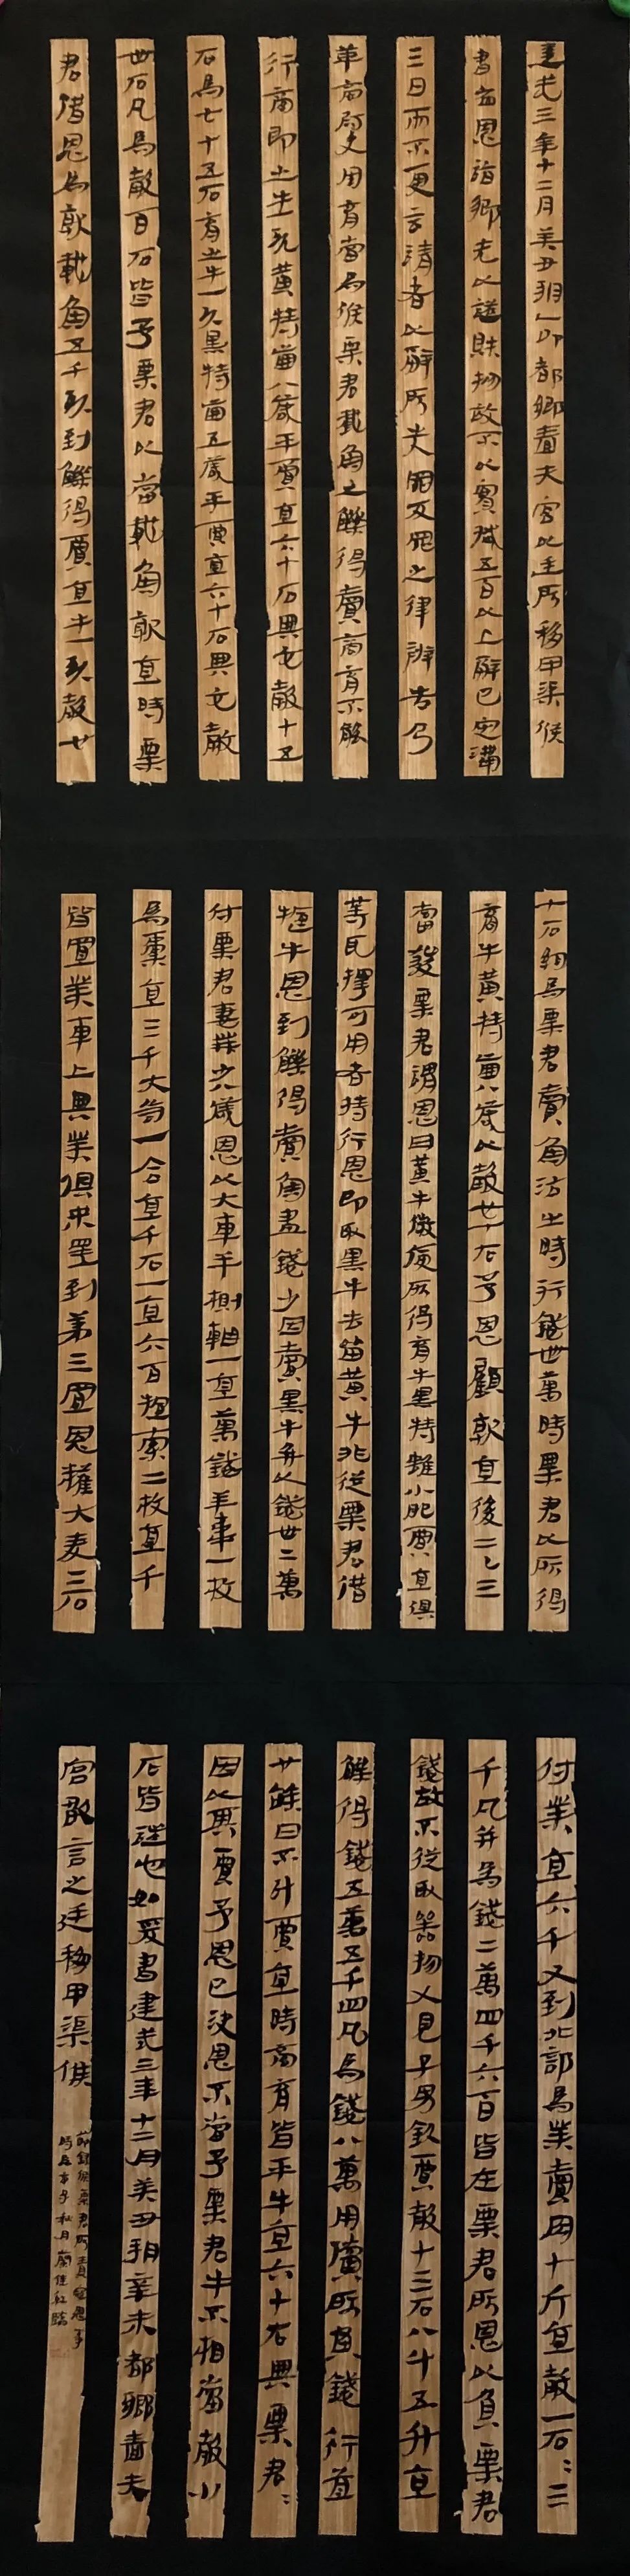 建武三年十二月癸丑朔乙卯都鄉嗇夫宮以廷所移甲渠候
書召恩詣鄉先以證財物故不以實臧五百以上辭已定滿
三日而不更言請者以辭所出入罪反罪之律辨告乃
華商尉史周育當為候粟君載魚之觻得賣商育不能
行商即出牛一頭黃特齒八歲平賈直六十石與它穀十五
石為七十五石育出牛一頭黑特齒五歲平賈直六十石與它穀
卌石凡為穀百石皆予粟君以當載魚就直時粟
君借恩為就載魚五千頭到觻得賈直牛一頭穀廿
十石約為粟君賣魚沽出時行錢卌萬時粟君以所得
商牛黃特齒八歲以穀廿七石予恩顧就直後二三
當發粟君謂恩曰黃牛微庾所得育牛黑特雖小肥賈直俱
等耳擇可用者持行恩即取黑牛去留黃牛非從粟君借
牛恩到觻得賣魚盡錢少因賣黑牛并以錢卅二萬
付粟君妻業少八歲恩以大車半側軸一直萬錢羊韋一枚
為橐直三千大笥一合直千石一直六百索二枚直千
皆置業車上與業俱來還到第三置恩糴大麥二石
付業直六千又到北部為業賣肉十斤直穀一石=三
千凡并為錢二萬四千六百皆在粟君所恩以負粟君
錢故不從取器物又見子男欽賈穀十三石八斗五升直
觻得錢五萬五千四凡為錢八萬用償所負錢 行道
廿餘日不計賈直時商育皆平牛直六十石與粟君=
因以其賈予恩已決恩不當予粟君牛不相當穀廿
石皆證也如爰書建武三年十二月癸丑朔辛未都鄉嗇夫
宮敢言之廷移甲渠候
節錄候粟君所責寇恩事